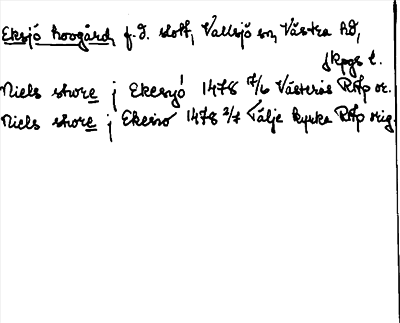 Eksjö hovgård, f.d. slott, Vallsjö sn, Västra hd,
Jkpgs l.
Niels skore j Ekesyö 1478 17/6 Västerås RAp or.
Niels skore j Ekesio 1478 2/7 Tälje kyrka RAp orig.